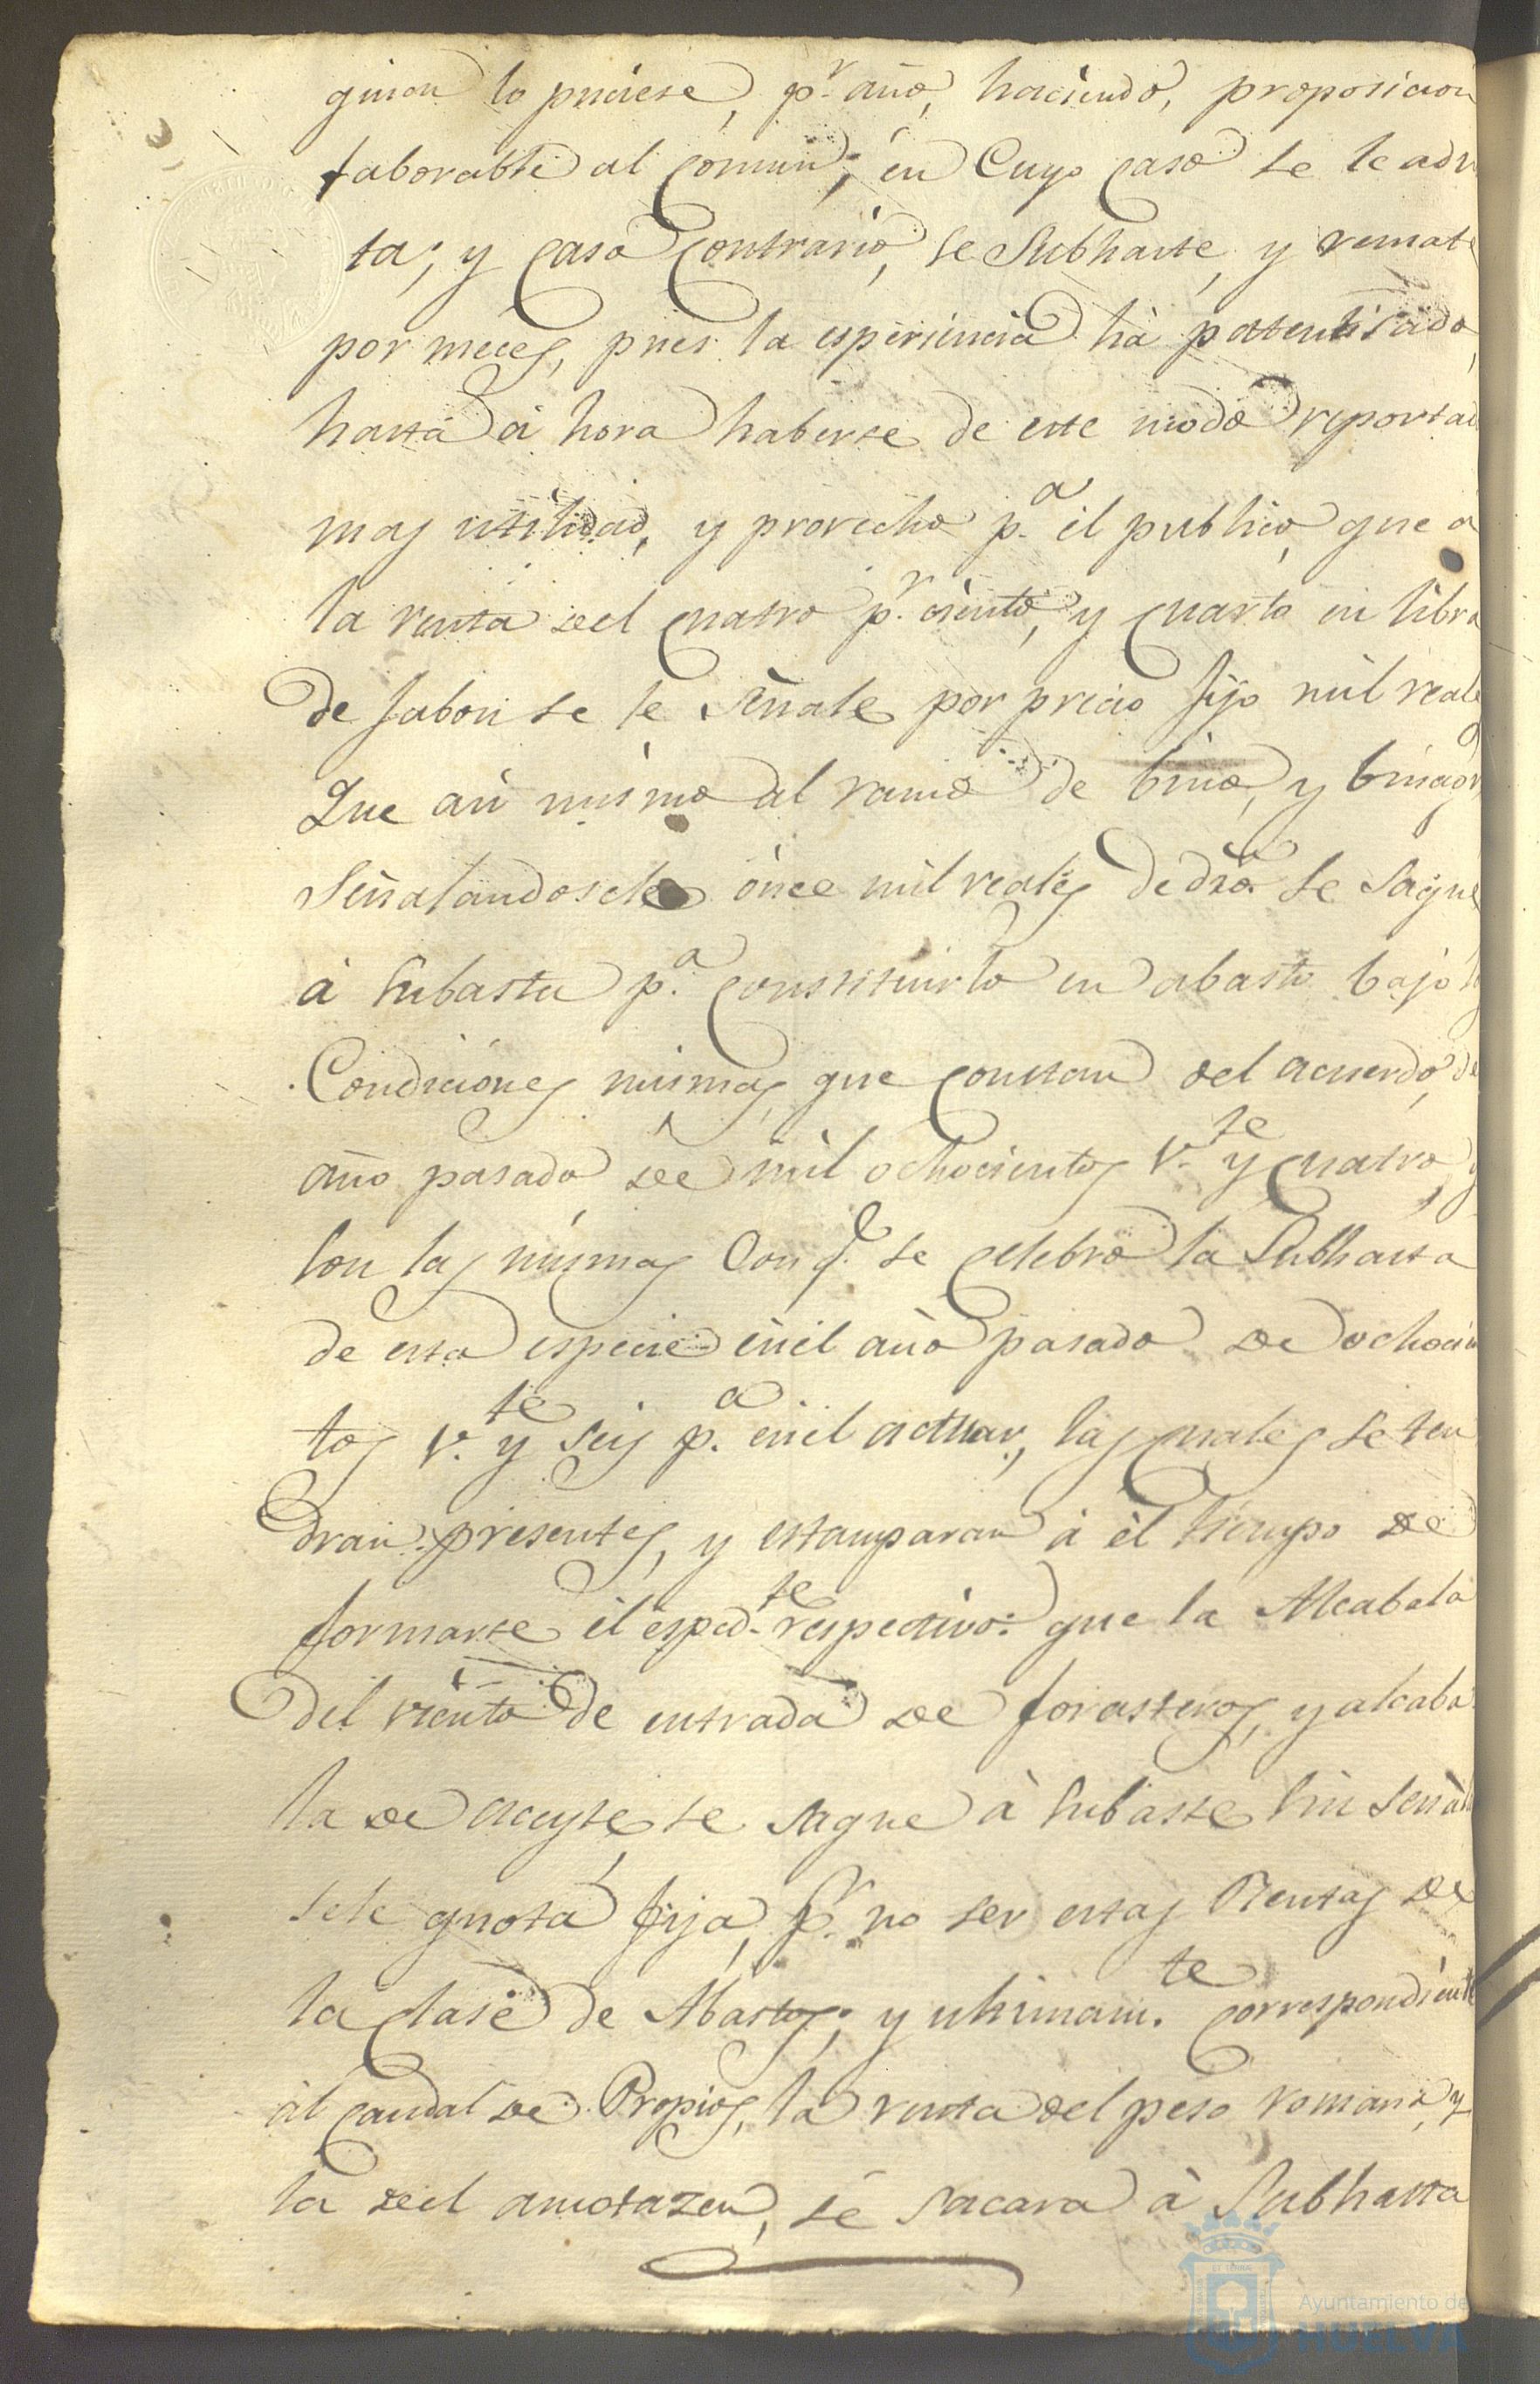 quien lo pusiese, p.r año, haciendo, proposicion
faborable al comun; en Cuyo caso se le adm
ta; y caso contrario, se Subhaste, y remate
por meces, pues la esperiencia ha patentisado,
hasta á hora haberse de este modo reportad
mas utilidad, y provecho p.a el publico, que a
la renta del cuatro p.r ciento, y cuarto en libra
de Jabon se le señale por precio fijo mil reale
Que asi mismo al ramo de bino, y binagr
Señalandosele once mil reales de dro. se saque
á subasta p.a constituirlo en abasto bajo
Condiciones mismas, que constan del acuerdo, de
año pasado de mil ochocientos v.te y cuatro, y
con las mismas Con q.e se celebró la Subhasta
de esta especie en el año pasado de ochocien
tos v.te y seis p.a en el actual, las cuales se ten
dran presentes, y estamparan á el tiempo de
formarse el esped.te respectivo: que la Alcabala
del viento de entrada de forasteros, y alcaba
la de aceyte, se saque á subaste sin señal
sele quota fija, p.r no ser estas Rentas de
la clase de Abastos; y ultimam.te correspondiente
al caudal de Propios, la renta del peso romana, y
la del amotazen, se sacara á Subhasta
Ayuntamiento de
HUELVA